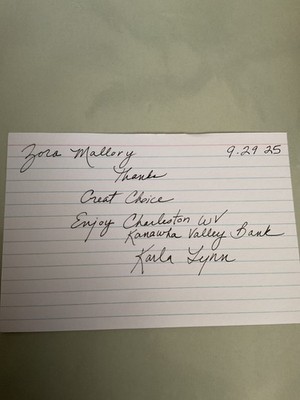 Zora Mallory 9-29 25
Thanks
Great Choice
Enjoy Charleston WV
Kanawha Valley Bank
Karla Lynn